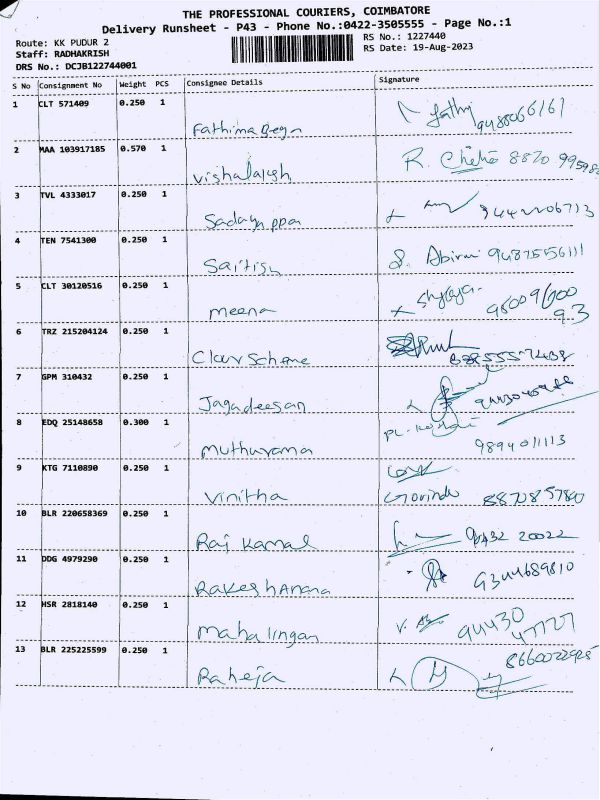 THE PROFESSIONAL COURIERS, COIMBATORE
Delivery Runsheet - P43 - Phone No.:0422-3505555 - Page No.:1
Route: KK PUDUR 2
RS No.: 1227440
Staff: RADHAKRISH
RS Date: 19-Aug-2023
DRS No.: DCJB122744001
S No Consignment No Weight PCS Consignee Details Signature
1 CLT 571409 0.250 1
Fathima Begn
2 MAA 103917185 0.570 1 R.
Vishalaksh
3 TVL 4333017 0.250 1
Sadayappan
4 TEN 7541300 0.250 1 Abirmi 9487556111
Saitish
5 CLT 30120516 0.250 1
meena
6 TRZ 215204124 0.250 1
Claur Scheme
7 GPM 310432 0.250 1
Jagadeesan
8 EDQ 25148658 0.300 1
muthurama 9894011113
9 KTG 7110890 0.250 1
Vinitha Govindu 8870857840
10 BLR 220658369 0.250 1 98432 20022
Raj Kamal
11 DDG 4979290 0.250 1 9344689810
Rakesh Anana
12 HSR 2818140 0.250 1 94430
Mahalingan 47727
13 BLR 225225599 0.250 1 8660022925
Raheja